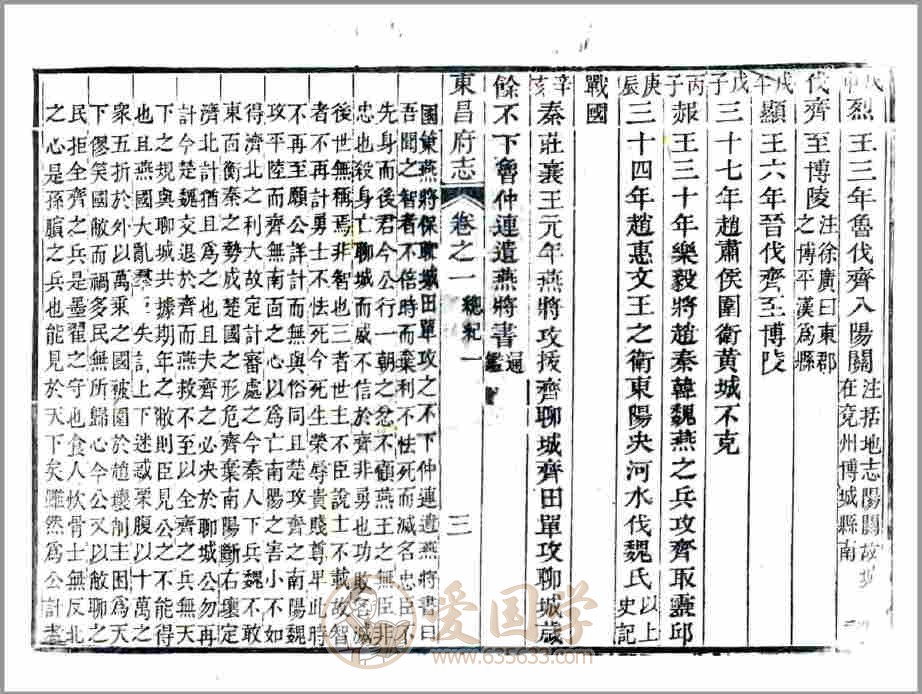 烈王三年魯伐齊入陽關 注括地志陽關故城在兗州博城縣南
伐齊至博陵 注徐廣曰東郡之博平漢爲縣
戊午 顯王六年晉伐齊至博陵
戊子 三十七年趙肅侯圍衛黄城不克
丙子 赧王三十年樂毅將趙秦韓魏燕之兵攻齊取靈邱
庚辰 三十四年趙惠文王之衛東陽决河水伐魏氏 以上史記
戰國
辛亥 秦莊襄王元年燕將攻拔齊聊城齊田單攻聊城歲
餘不下魯仲連遺燕將書 通鑑
東昌府志 卷之一 總紀一 三
國策燕將保聊城田單攻之不下仲連遺燕將書曰
吾聞之智者不倍時而棄利不怯死而滅名忠臣不
先身而後君今公行一朝之忿不顧燕王之無臣非
忠也殺身亡聊城而威不信於齊非勇也功敗名滅
後世無稱焉非智也三者世主不臣說士不載故智
者不再計勇士不怯死今死生榮辱貴賤尊卑此時
不再至願公詳計而無與俗同且楚攻齊之南陽魏
攻平陸而齊無南面之心以爲亡南陽之害小不如
得濟北之利大故定計審處之今秦人下兵魏不敢
東面衡秦之勢成楚國之形危齊棄南陽斷右壤定
濟北計猶且爲之也且夫齊之必决於聊城公勿再
計今楚魏交退於齊而燕救不至以全齊之兵無天
下之規與聊城共據期年之敝則臣見公之不能得
也且燕國大亂失計上下迷惑栗腹以十萬之
衆五折於外以萬乘之國被圍於趙壤削主困爲天
下僇笑國敝而禍多民無所歸心今公又以敝聊之
民拒全齊之兵是墨翟之守也食人炊骨士無反北
之心是孫臏之兵也能見於天下矣雖然爲公計者
爱国学
www.635633.com